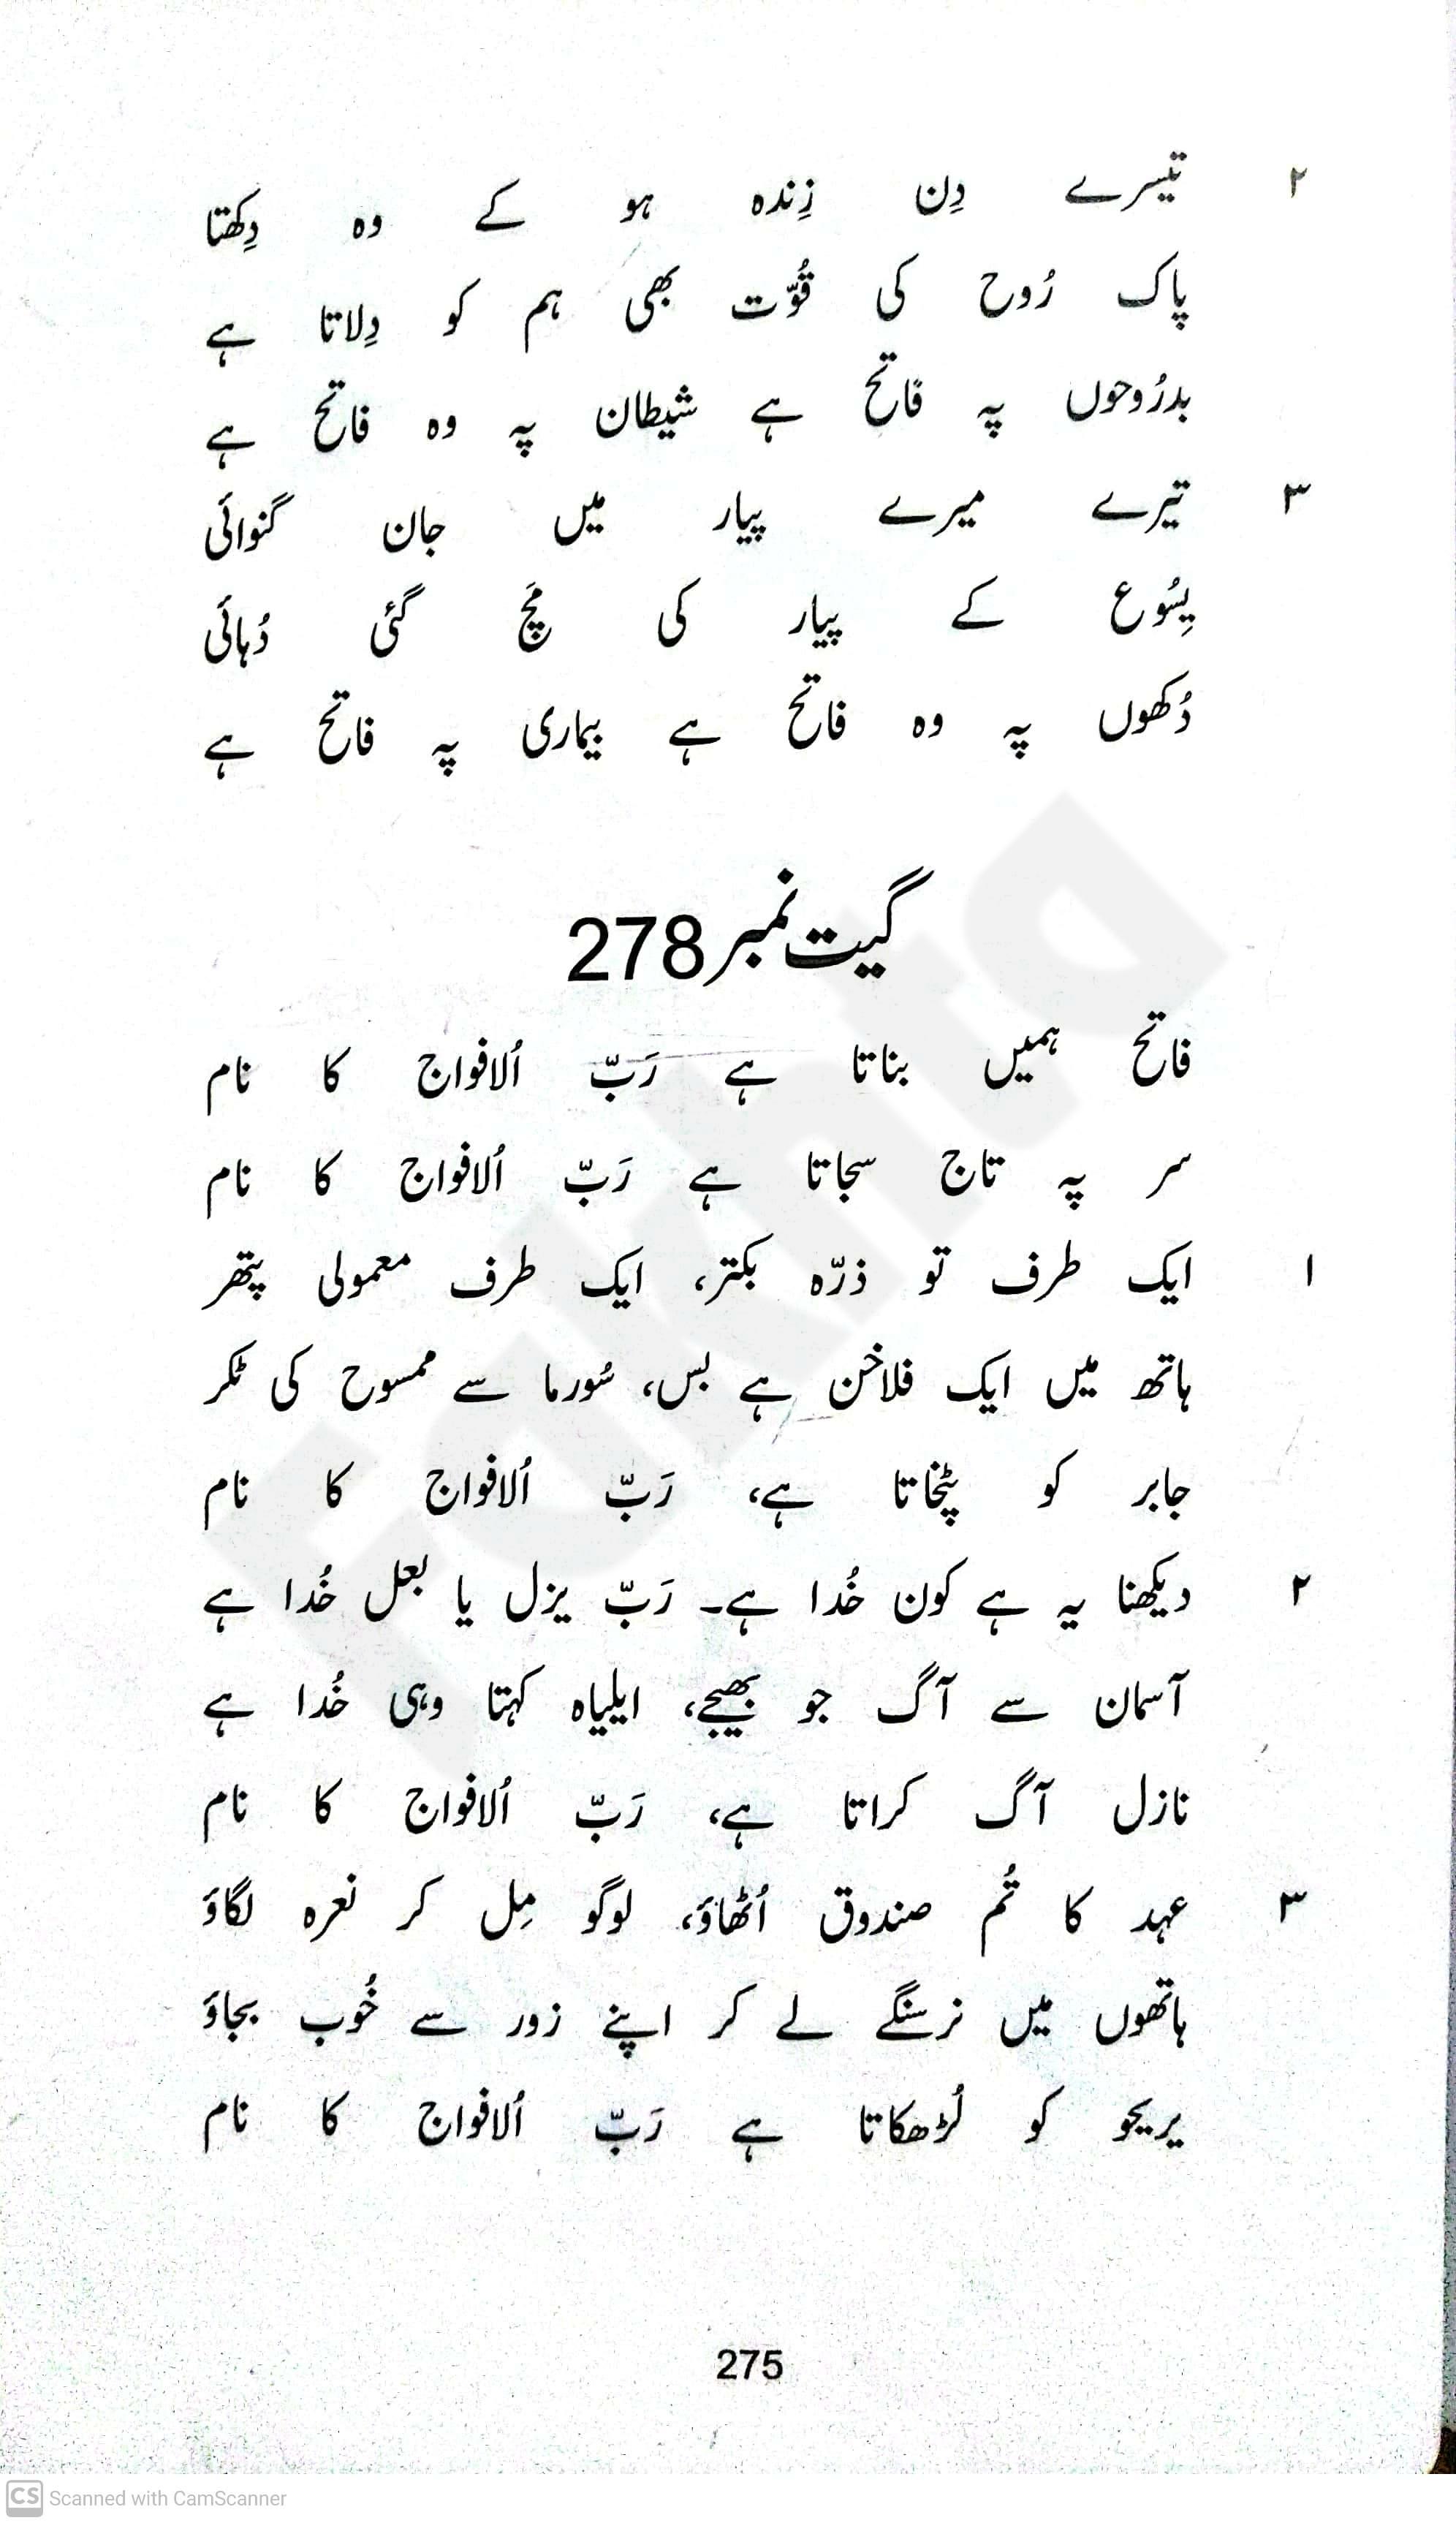 ۲ تیسرے دِن زِندہ ہو کے وہ دِکھتا
پاک رُوح کی قُوّت بھی ہم کو دِلاتا ہے
بدرُوحوں پہ فاتح ہے شیطان پہ وہ فاتح ہے
۳ تیرے میرے پیار میں جان گنوائی
یِسُوع کے پیار کی مَچ گئی دُہائی
دُکھوں پہ وہ فاتح ہے بیماری پہ فاتح ہے
گیت نمبر 278
فاتح ہمیں بناتا ہے رَبّ اُلافواج کا نام
سر پہ تاج سجاتا ہے رَبّ اُلافواج کا نام
۱ ایک طرف تو ذرّہ بکتر، ایک طرف معمولی پتھر
ہاتھ میں ایک فلاخن ہے بس، سُورما سے ممسوح کی ٹکر
جابر کو پٹخاتا ہے، رَبّ اُلافواج کا نام
۲ دیکھنا یہ ہے کون خُدا ہے۔ رَبّ یزل یا بعل خُدا ہے
آسمان سے آگ جو بھیجے، ایلیاہ کہتا وہی خُدا ہے
نازل آگ کراتا ہے، رَبّ اُلافواج کا نام
۳ عہد کا تُم صندوق اُٹھاؤ، لوگو مِل کر نعرہ لگاؤ
ہاتھوں میں نرسنگے لے کر اپنے زور سے خُوب بجاؤ
یریحو کو لُڑھکاتا ہے رَبّ اُلافواج کا نام
275
Fakhta
CS Scanned with CamScanner